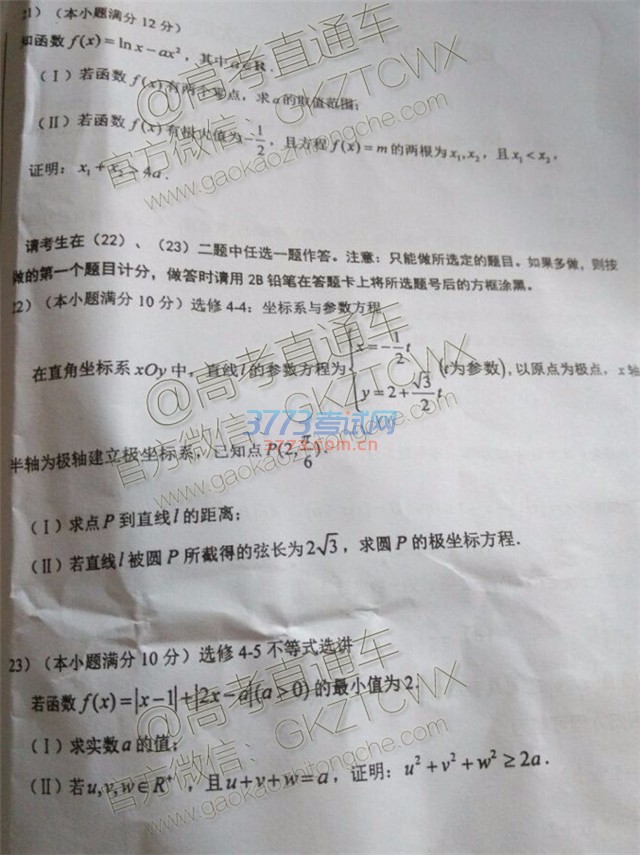 21)（本小题满分 12 分）
知函数 f(x)=ln x−ax²，其中 a∈R.
（Ⅰ）若函数 f(x) 有两个零点，求 a 的取值范围；
（Ⅱ）若函数 f(x) 有极大值为 −1/2，且方程 f(x)=m 的两根为 x₁,x₂，且 x₁<x₂，
证明：x₁+x₂>4a.
请考生在（22）、（23）二题中任选一题作答。注意：只能做所选定的题目。如果多做，则按
做的第一个题目计分，做答时请用 2B 铅笔在答题卡上将所选题号后的方框涂黑。
22)（本小题满分 10 分）选修 4-4：坐标系与参数方程
在直角坐标系 xOy 中，直线 l 的参数方程为 { x=−1/2 t  y=2+√3/2 t （t为参数），以原点为极点，x 轴
半轴为极轴建立极坐标系，已知点 P(2,π/6).
（Ⅰ）求点 P 到直线 l 的距离；
（Ⅱ）若直线 l 被圆 P 所截得的弦长为 2√3，求圆 P 的极坐标方程.
23)（本小题满分 10 分）选修 4-5 不等式选讲
若函数 f(x)=|x−1|+|2x−a|(a>0) 的最小值为 2.
（Ⅰ）求实数 a 的值；
（Ⅱ）若 u,v,w∈R⁺，且 u+v+w=a，证明：u²+v²+w²≥2a.
@高考直通车
官方微信：GKZTCWX
www.gaokaozhitongche.com
@高考直通车
官方微信：GKZTCWX
3773考试网
3773.com.cn
@高考直通车
官方微信：GKZTCWX
www.gaokaozhitongche.com